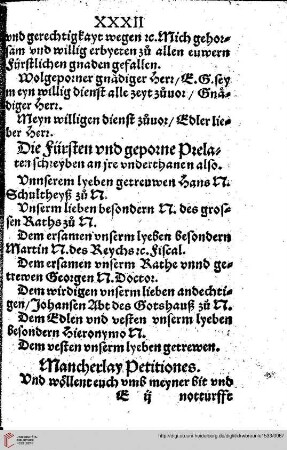 XXXII
vnd gerechtigkayt wegen ꝛc. Mich gehoꝛ-
sam vnd willig erbyeten zů allen euwern
Fürstlichen gnaden gefallen.
Wolgepoꝛner gnådiger Herr/ E. G. sey
m eyn willig dienst alle zeyt zůuoꝛ/ Gnå-
diger Herr.
Meyn willigen dienst zůuoꝛ/ Edler lie-
ber Herr.
Die Fürsten vnd gepoꝛne Pꝛela-
ten schꝛeyben an jre vnderthanen also.
Vnnserem lyeben getreuwen Hans N.
Schultheyß zů N.
Vnserm lieben besondern N. des gros-
sen Raths zů N.
Dem ersamen vnserm lyeben besondern
Martin N. des Reychs ꝛc. Fiscal.
Dem ersamen vnserm Rathe vnnd ge-
trewen Geoꝛgen N. Doctoꝛ.
Dem wirdigen vnserm lieben andechti-
gen/ Johansen Abt des Gotshauß zů N.
Dem Edlen vnd vesten vnserm lyeben
besondern Hieronymo N.
Dem vesten vnserm lyeben getrewen.
Mancherlay Petitiones.
Vnd wöllent euch vmb meyner bit vnd
E ij notturfft